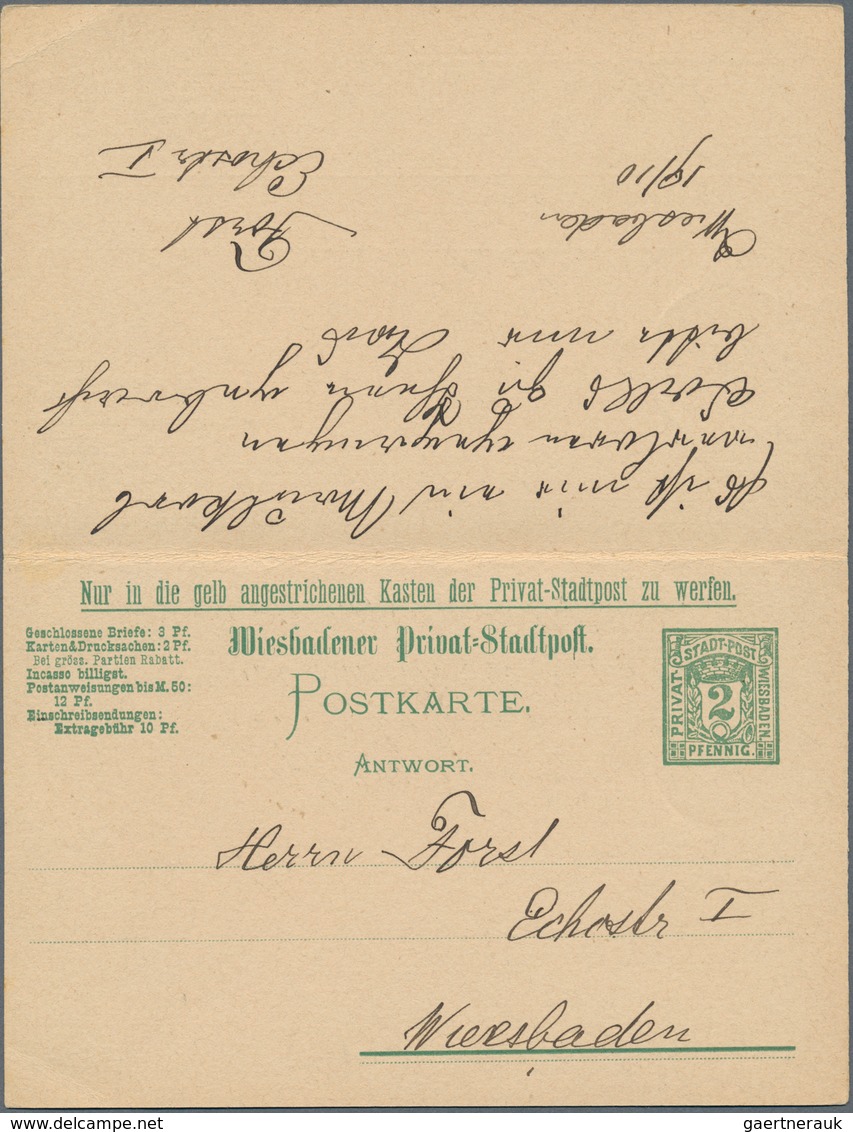 Es ist mir ein Maulkorb
verloren gegangen
bitte mir
Wiesbaden
19/10
Forst
Echostr I
Nur in die gelb angestrichenen Kasten der Privat-Stadtpost zu werfen.
Geschlossene Briefe: 3 Pf.
Karten & Drucksachen: 2 Pf.
Bei gröss. Partien Rabatt.
Incasso billigst.
Postanweisungen bis M. 50:
12 Pf.
Einschreibsendungen:
Extragebühr 10 Pf.
Wiesbadener Privat-Stadtpost.
POSTKARTE.
ANTWORT.
PRIVAT-
STADT-POST
WIESBADEN.
2
PFENNIG.
Herrn Forst
Echostr I
Wiesbaden
www.delcampe.net
gaertnerauk